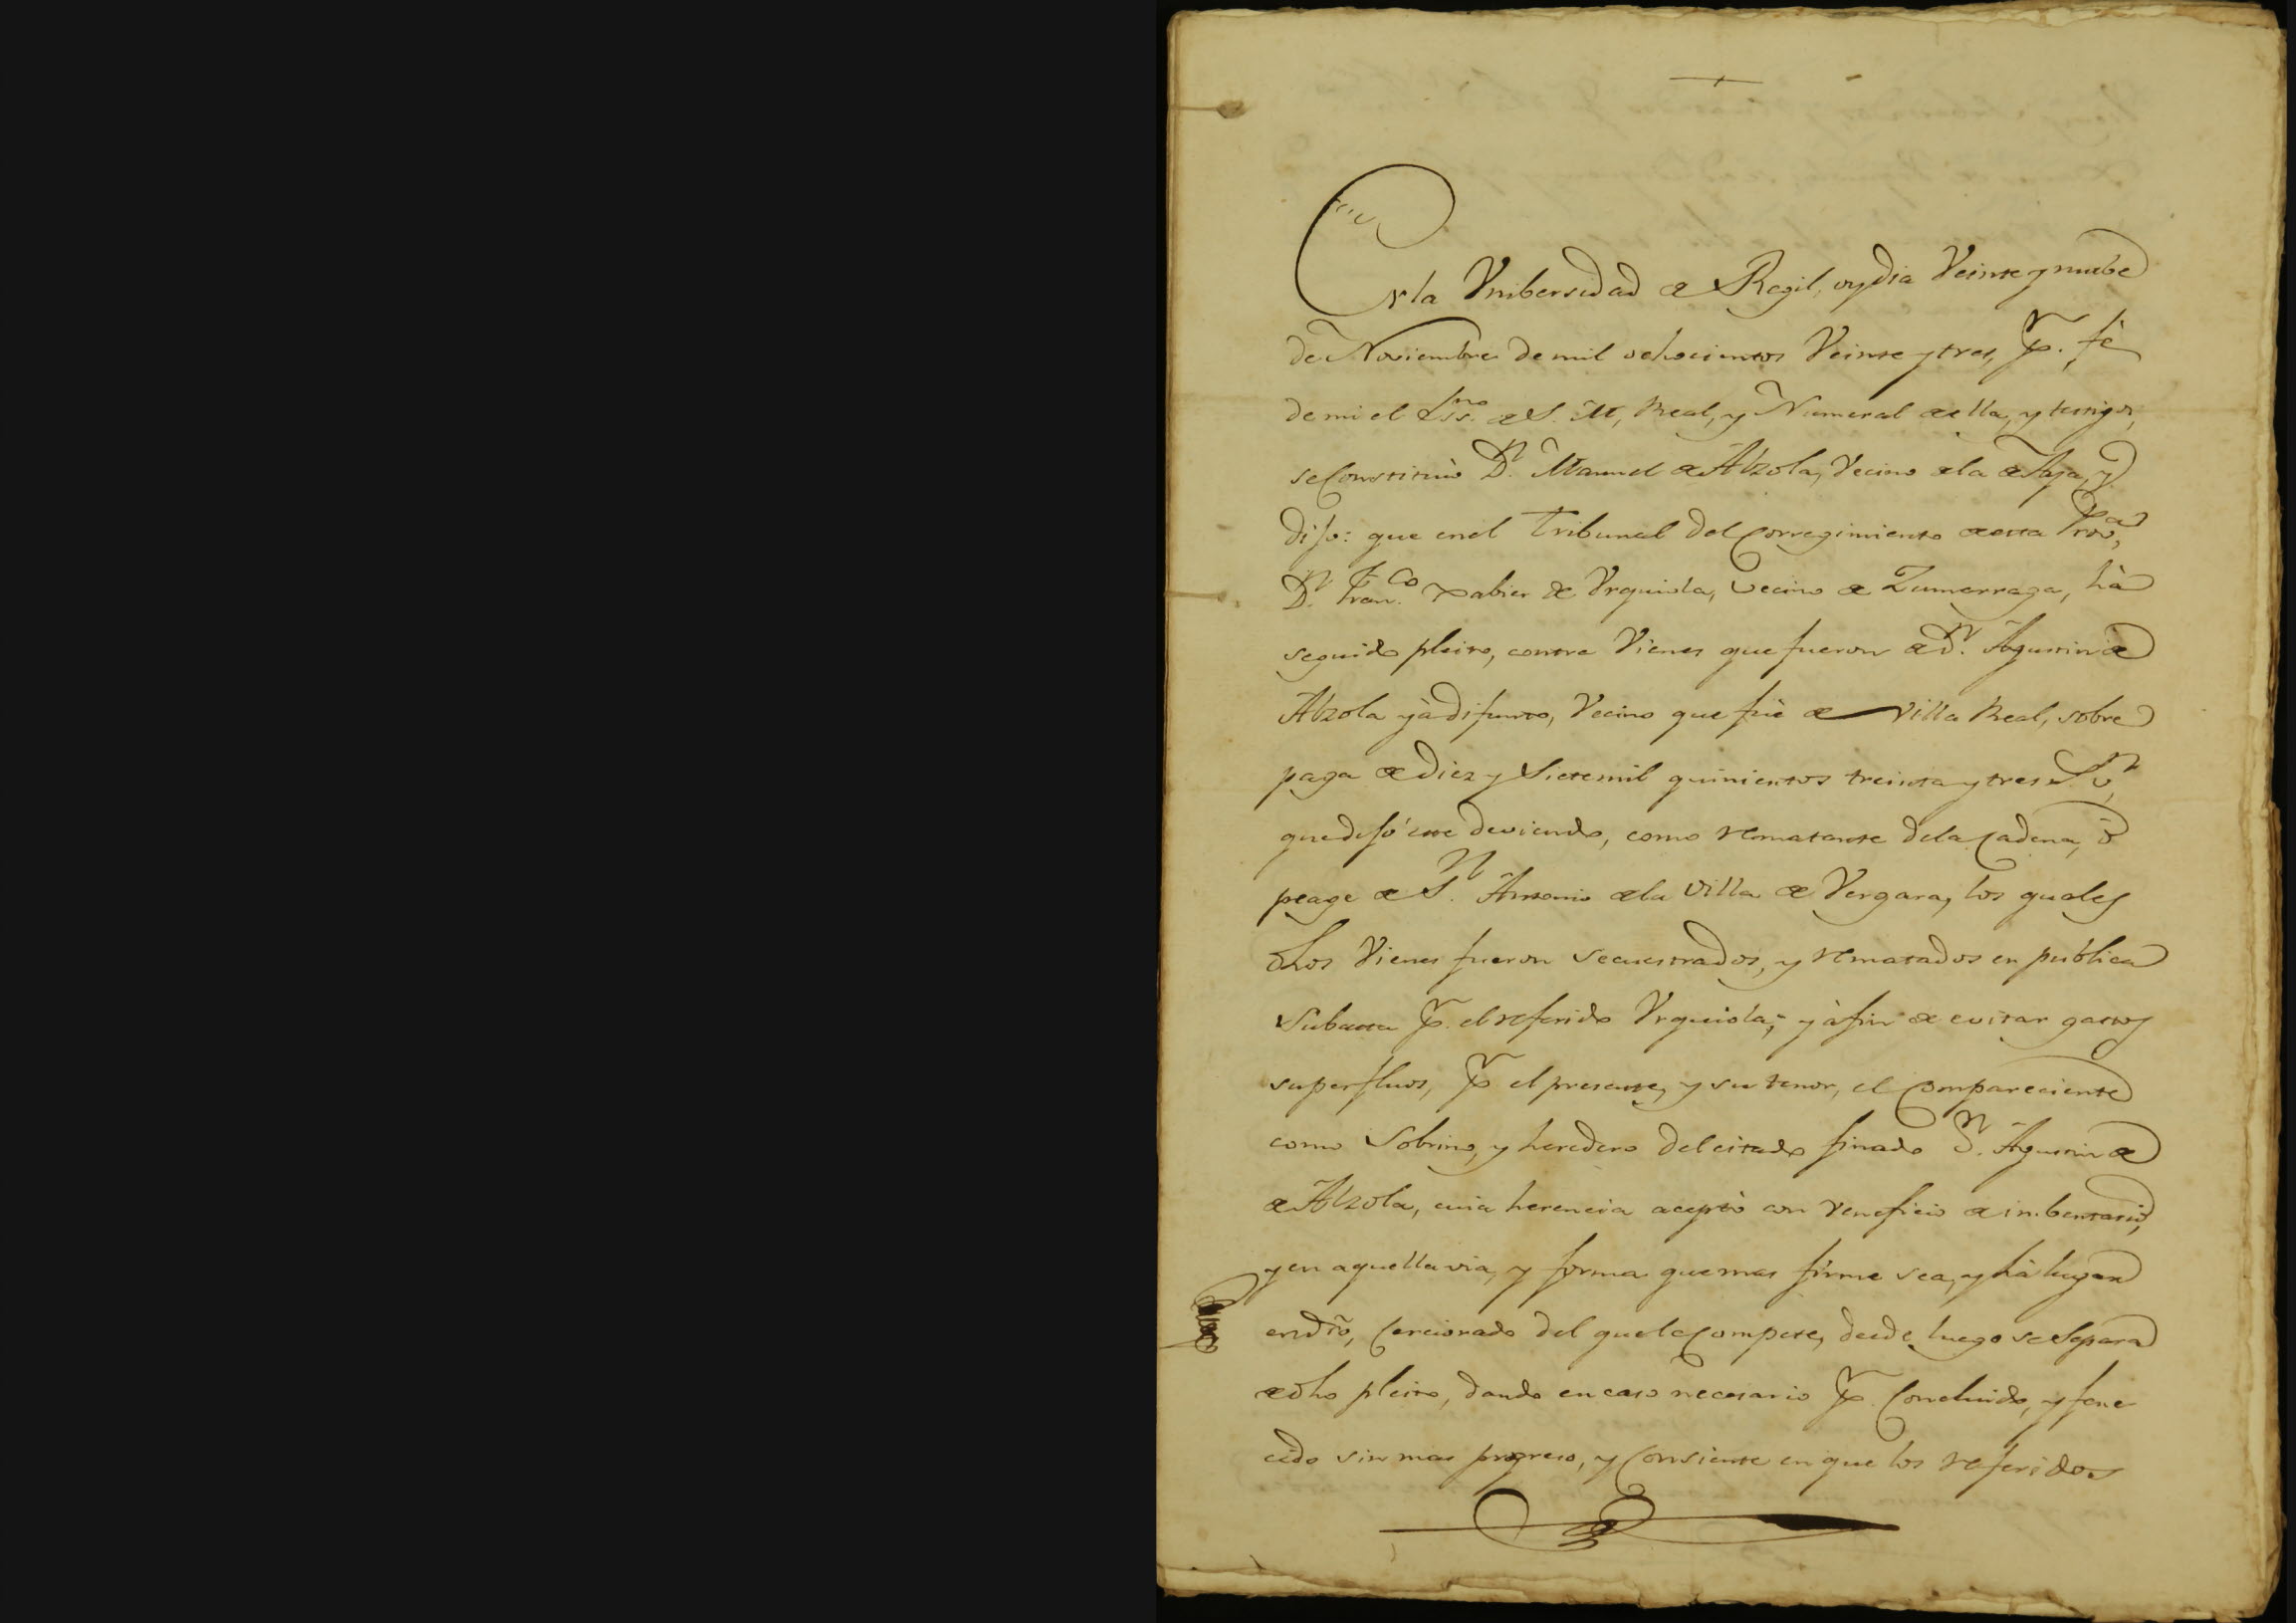 En la Vnibersidad de Regil, oy dia Veinte y nuebe
de Noviembre de mil ochocientos Veinte y tres, Pr. fè
de mi el Essno. de S. M, Real, y Numeral de ella, y testigos,
se Constituiò Dn. Manuel de Alzola, Vecino de la de Aya, y
dijo: que en el Tribunal del Corregimiento de esta Prova,
Dn. Franco. Xabier de Vrquiola, Vecino de Zumarraga, hà
seguido pleito, contra Vienes que fueron de Dn. Agustin de
Alzola yà difunto, Vecino que fuè de Villa Real, sobre
paga de Diez y Siete mil quinientos treinta y tres Rs. vn,
que dejó este deviendo, como rematante de la Cadena, ò
peage de Sn. Antonio de la Villa de Vergara, los quales
dhos Vienes fueron secuestrados, y rematados en pública
Subasta Pr. el referido Vrquiola; y à fin de evitar gastos
superfluos, Pr. el presente, y su tenor, el Compareciente
como Sobrino, y heredero del citado finado Dn. Agustin de
de Alzola, cuia herencia aceptò con Veneficio de inbentario,
y en aquella via, y forma que mas firme sea, y hà lugar
en dro, Cerciorado del que le Compete, desde luego se Separa
de dho pleito, dando en caso necesario Pr. Concluido, y fene
cido sin mas progreso, y Consiente en que los referidos